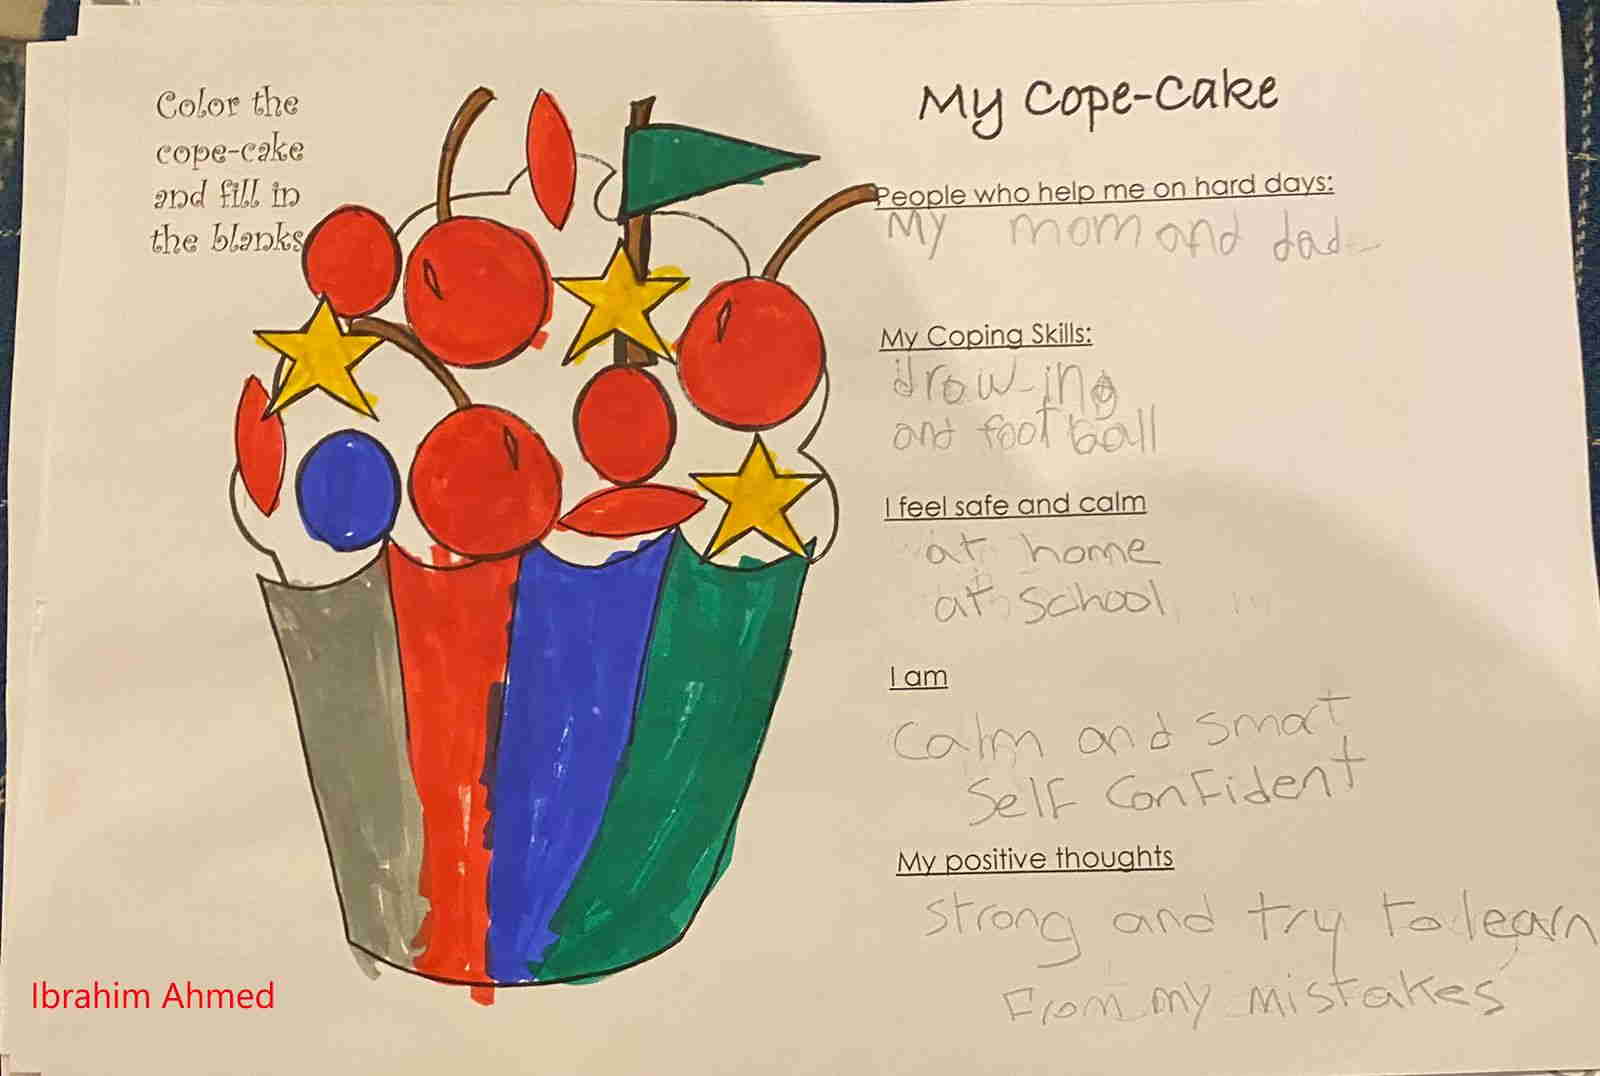 Color the
cope-cake
and fill in
the blanks
My Cope-Cake
People who help me on hard days:
My mom and dad
My Coping Skills:
drowing
and foot ball
I feel safe and calm
at home
at school
I am
calm and smart
Self confident
My positive thoughts
strong and try to learn
From my mistakes
Ibrahim Ahmed